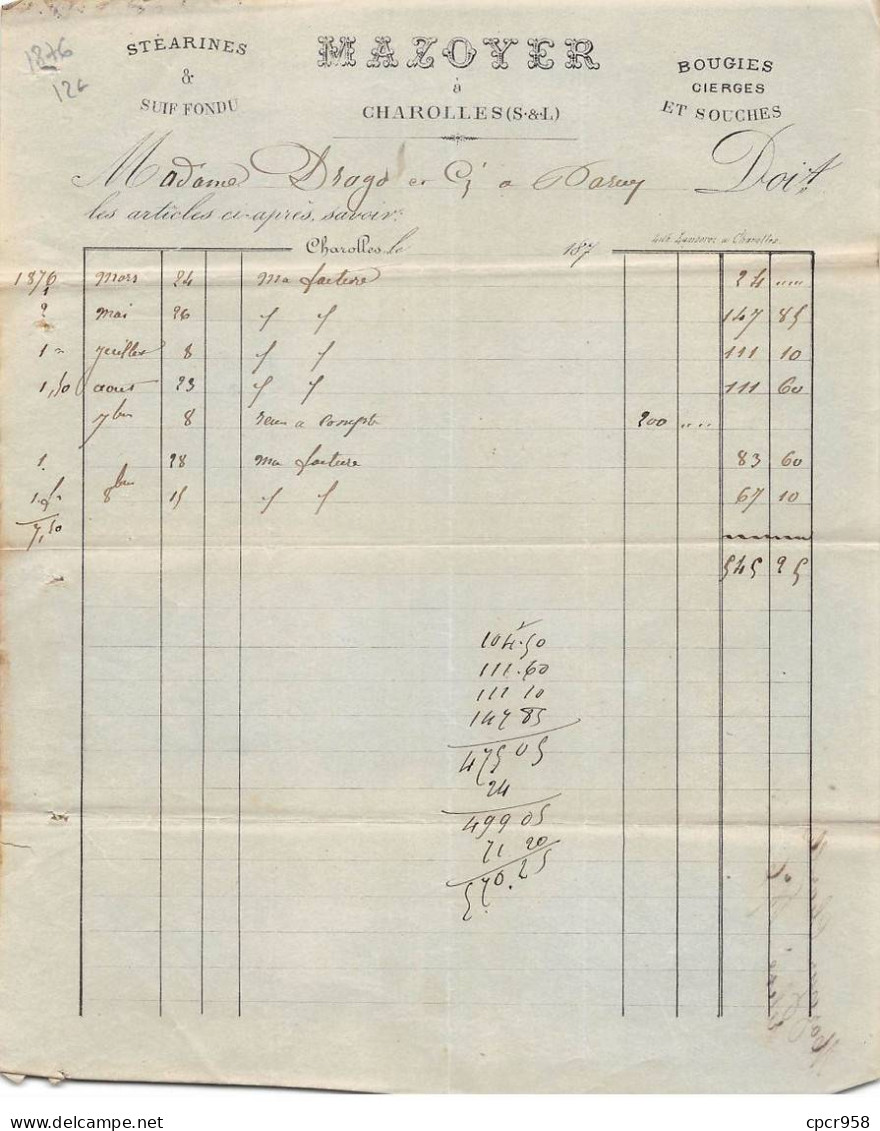 1876
STÉARINES
&
SUIF FONDU
MAZOYER
à
CHAROLLES (S.&L)
BOUGIES
CIERGES
ET SOUCHES
Madame Drago et Cie a Paray Doit
les articles ci-après, savoir:
Charolles, le 187
1876 mars 24 ma facture 24 ....
2 mai 26 " " 147 85
1 " juillet 8 " " 111 10
1,50 aout 23 " " 111 60
7bre 8 recu a compte 200 ....
1. 28 ma facture 83 60
8bre 15 " " 67 10
7,50
545 25
104.50
111.60
111 10
147 85
475 05
24
499 05
71 20
570.25
cpcr958